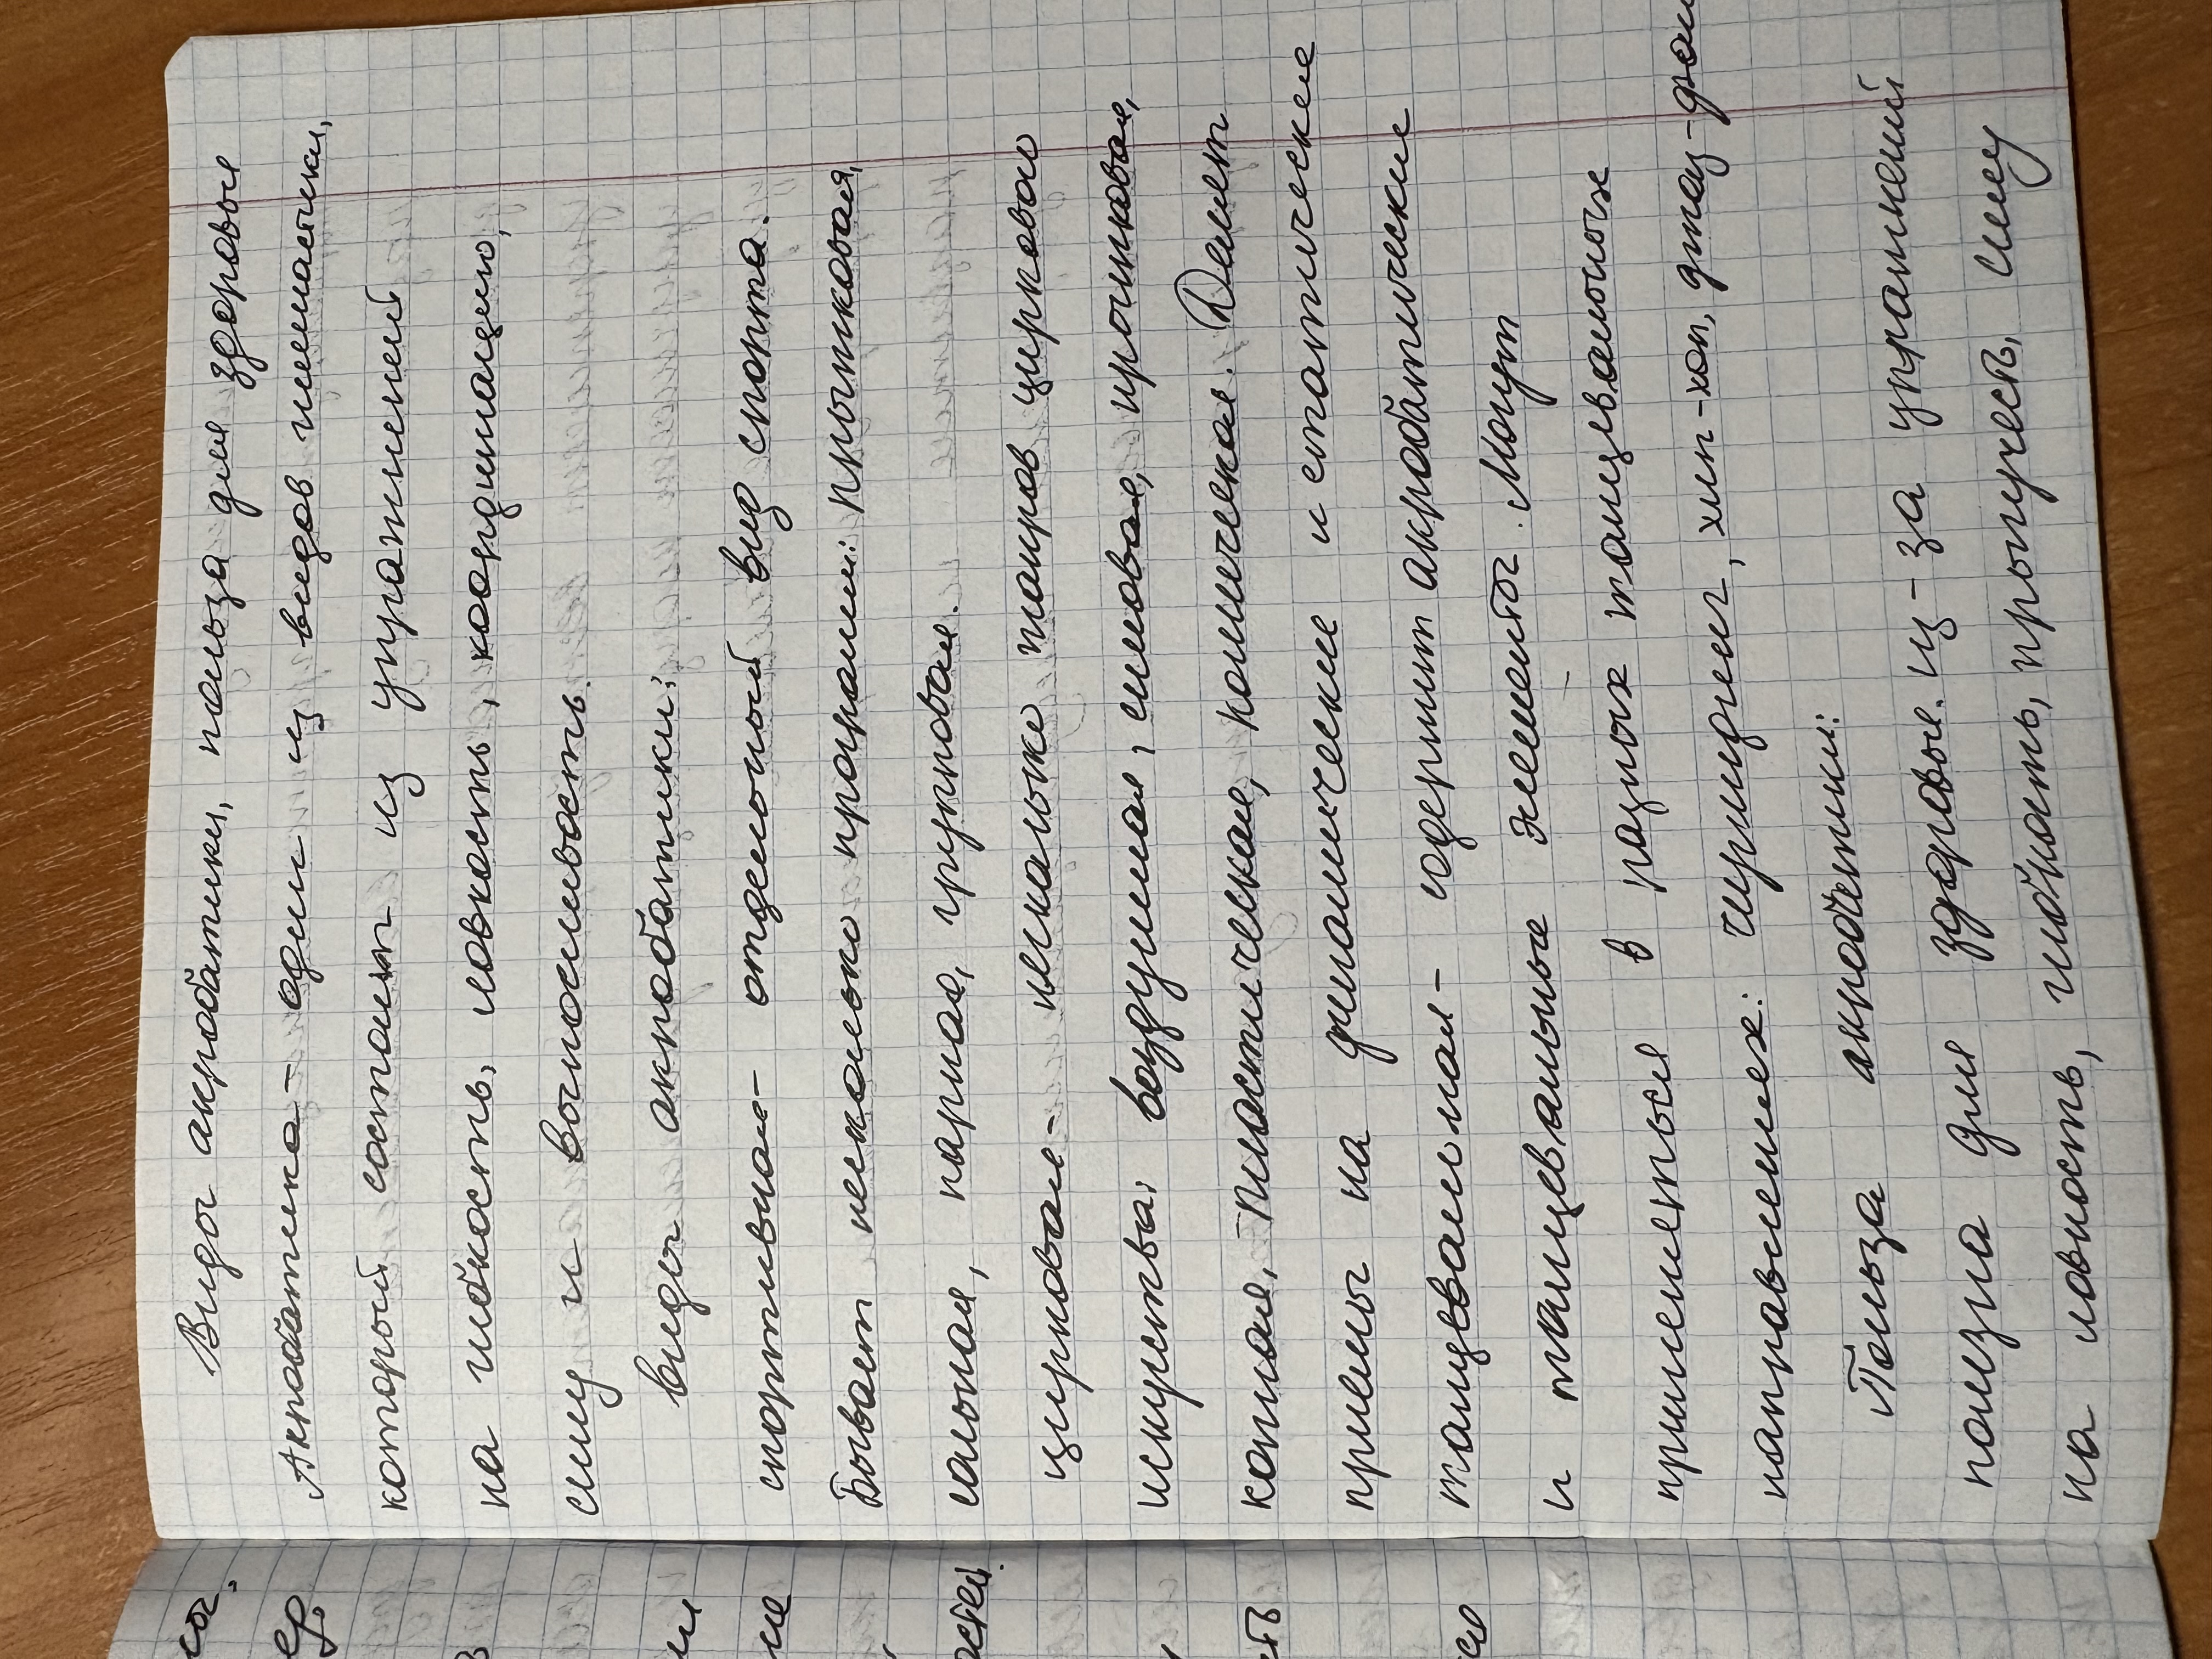 Виды акробатики, польза для здоровья
Акробатика - один из видов гимнастики,
который состоит из упражнений
на гибкость, ловкость, координацию,
силу и выносливость.
виды акробатики:
спортивная - отдельный вид спорта.
Бывает несколько програми: прыжковая,
сольная, парная, групповая.
цирковая - несколько жанров циркового
искуства: воздушная, силовая, прочиковая,
котная, пластическая, комическая. Делит
приемы на динамические и статические
танцевальная - содержит акробатические
и танцевальные элементы. Могут
применяться в разных танцевальных
направлениях: чирлидинг, хип-хоп, джаз-фанк
Польза акробатики:
полезна для здоровья. из-за упражнений
на ловкость, гибкость, прыгучесть, силу
сы,
ер,
в
и
ие
,
остей.
,
сть